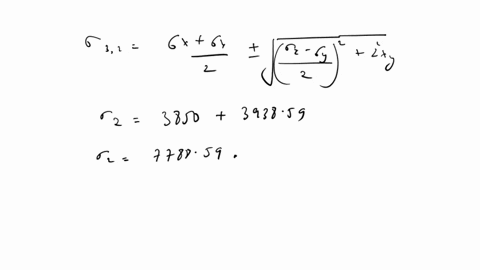 σ₃,₂ = (σx + σx)/2 ± √(((σx - σy)/2)² + τ²xy)
σ₂ = 3850 + 3938.59
σ₂ = 7788.59.